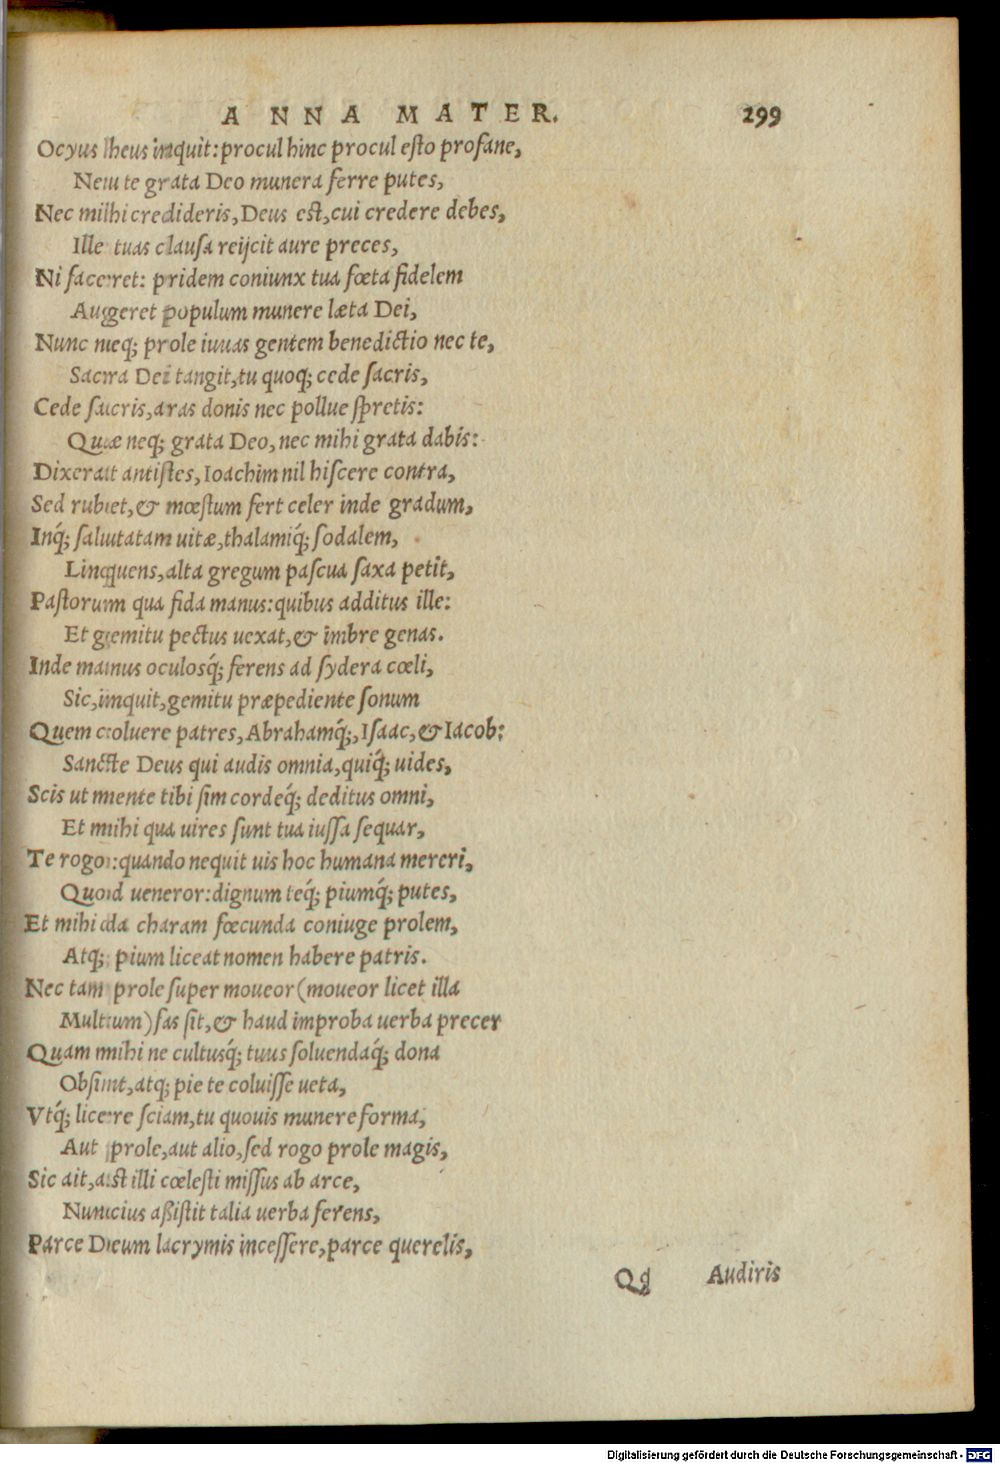 ANNA MATER. 299
Ocyus heus inquit: procul hinc procul esto profane,
Neu te grata Deo munera ferre putes,
Nec mihi credideris, Deus est, cui credere debes,
Ille tuas clausa reijcit aure preces,
Ni faceret: pridem coniunx tua fœta fidelem
Augeret populum munere læta Dei,
Nunc neq; prole iuuas gentem benedictio nec te,
Sacra Dei tangit, tu quoq; cede sacris,
Cede sacris, aras donis nec pollue spretis:
Quæ neq; grata Deo, nec mihi grata dabis:
Dixerat antistes, Ioachim nil hiscere contra,
Sed rubet, & mœstum fert celer inde gradum,
Inq́; salutatam uitæ, thalamiq́; sodalem,
Linquens, alta gregum pascua saxa petit,
Pastorum qua fida manus: quibus additus ille:
Et gemitu pectus uexat, & imbre genas.
Inde manus oculosq́; ferens ad sydera cœli,
Sic, inquit, gemitu præpediente sonum
Quem coluere patres, Abrahamq́;, Isaac, & Iacob:
Sancte Deus qui audis omnia, quiq́; uides,
Scis ut mente tibi sim cordeq́; deditus omni,
Et mihi qua uires sunt tua iussa sequar,
Te rogo: quando nequit uis hoc humana mereri,
Quod ueneror: dignum teq́; piumq́; putes,
Et mihi da charam fœcunda coniuge prolem,
Atq; pium liceat nomen habere patris.
Nec tam prole super moueor (moueor licet illa
Multum) fas sit, & haud improba uerba precer
Quam mihi ne cultusq́; tuus soluendaq́; dona
Obsint, atq; pie te coluisse ueta,
Vtq́; licere sciam, tu quouis munere forma,
Aut prole, aut alio, sed rogo prole magis,
Sic ait, ast illi cœlesti missus ab arce,
Nuncius aßistit talia uerba ferens,
Parce Deum lacrymis incessere, parce querelis,
Qq Audiris
Digitalisierung gefördert durch die Deutsche Forschungsgemeinschaft - DFG